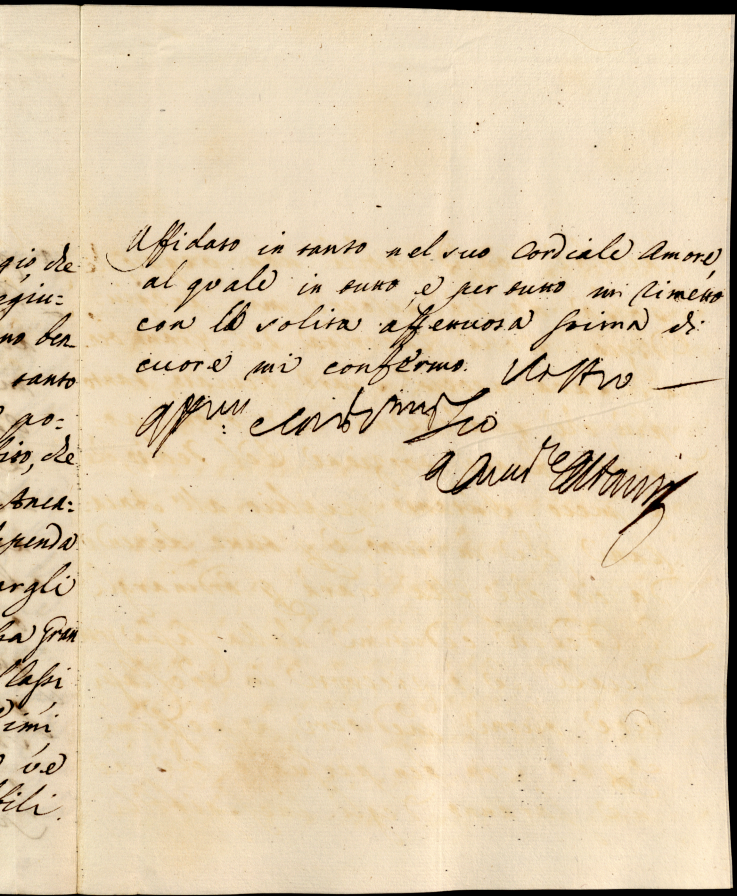 gio, che
egiu=
no ben
tanto
po=
sito, che
Anca=
penda
argli
ha gran
Classi
Dimi
ve
bili.
Affidato in tanto nel suo Cordiale Amore,
al quale in tutto, e per tutto mi rimetto
con la solita affettuosa stima di
cuore mi confermo. Vostro —